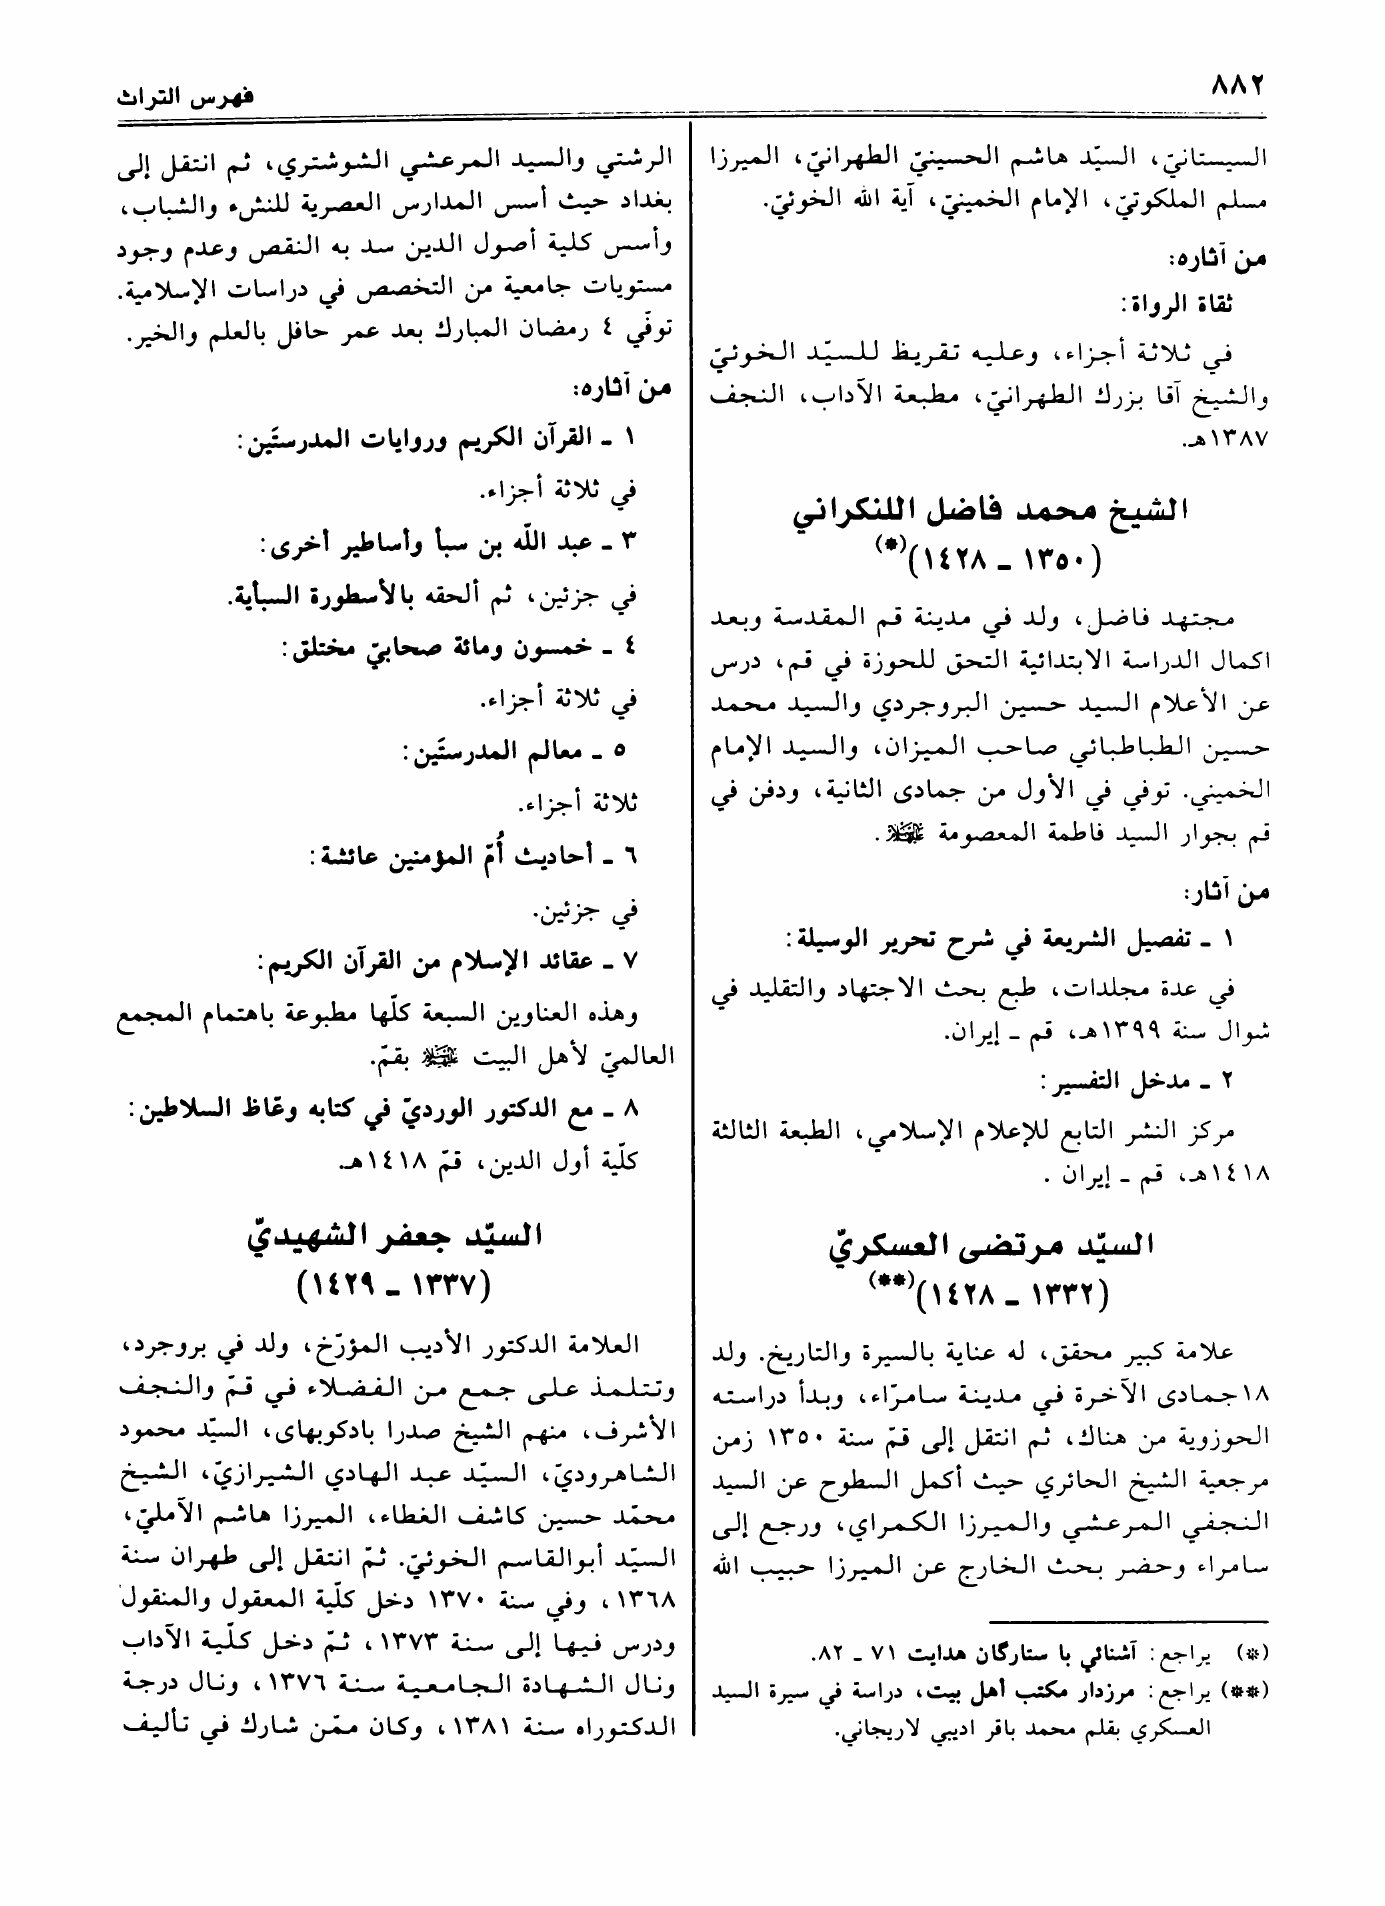 ٨٨٢
فهرس التراث
السيستانيّ، السيّد هاشم الحسينيّ الطهرانيّ، الميرزا
مسلم الملكوتيّ، الإمام الخمينيّ، آية الله الخوئيّ.
من آثاره:
ثقاة الرواة:
في ثلاثة أجزاء، وعليه تقريظ للسيّد الخوئيّ
والشيخ آقا بزرك الطهرانيّ، مطبعة الآداب، النجف
١٣٨٧هـ.
الشيخ محمد فاضل اللنكراني
(١٣٥٠ ـ ١٤٢٨)(*)
مجتهد فاضل، ولد في مدينة قم المقدسة وبعد
اكمال الدراسة الابتدائية التحق للحوزة في قم، درس
عن الأعلام السيد حسين البروجردي والسيد محمد
حسين الطباطبائي صاحب الميزان، والسيد الإمام
الخميني. توفي في الأول من جمادى الثانية، ودفن في
قم بجوار السيد فاطمة المعصومة .
من آثار:
١ ـ تفصيل الشريعة في شرح تحرير الوسيلة:
في عدة مجلدات، طبع بحث الاجتهاد والتقليد في
شوال سنة ١٣٩٩هـ، قم ـ إيران.
٢ ـ مدخل التفسير:
مركز النشر التابع للإعلام الإسلامي، الطبعة الثالثة
١٤١٨هـ، قم ـ إيران .
السيّد مرتضى العسكريّ
(١٣٣٢ ـ ١٤٢٨)(**)
علامة كبير محقق، له عناية بالسيرة والتاريخ. ولد
١٨جمادى الآخرة في مدينة سامرّاء، وبدأ دراسته
الحوزوية من هناك، ثم انتقل إلى قمّ سنة ١٣٥٠ زمن
مرجعية الشيخ الحائري حيث أكمل السطوح عن السيد
النجفي المرعشي والميرزا الكمراي، ورجع إلى
سامراء وحضر بحث الخارج عن الميرزا حبيب الله
(*) يراجع: آشنائي با ستارگان هدايت ٧١ ـ ٨٢.
(**) يراجع: مرزدار مكتب أهل بيت، دراسة في سيرة السيد
العسكري بقلم محمد باقر اديبي لاريجاني.
الرشتي والسيد المرعشي الشوشتري، ثم انتقل إلى
بغداد حيث أسس المدارس العصرية للنشء والشباب،
وأسس كلية أصول الدين سد به النقص وعدم وجود
مستويات جامعية من التخصص في دراسات الإسلامية.
توفّي ٤ رمضان المبارك بعد عمر حافل بالعلم والخير.
من آثاره:
١ ـ القرآن الكريم وروايات المدرستَين:
في ثلاثة أجزاء.
٣ ـ عبد اللّه بن سبأ وأساطير أخرى:
في جزئين، ثم ألحقه بالأسطورة السبأية.
٤ ـ خمسون ومائة صحابيّ مختلق:
في ثلاثة أجزاء.
٥ ـ معالم المدرستَين:
ثلاثة أجزاء.
٦ ـ أحاديث أُمّ المؤمنين عائشة:
في جزئين.
٧ ـ عقائد الإسلام من القرآن الكريم:
وهذه العناوين السبعة كلّها مطبوعة باهتمام المجمع
العالميّ لأهل البيت بقمّ.
٨ ـ مع الدكتور الورديّ في كتابه وعّاظ السلاطين:
كلّية أول الدين، قمّ ١٤١٨هـ.
السيّد جعفر الشهيديّ
(١٣٣٧ ـ ١٤٢٩)
العلامة الدكتور الأديب المؤرّخ، ولد في بروجرد،
وتتلمذ على جمع من الفضلاء في قمّ والنجف
الأشرف، منهم الشيخ صدرا بادكوبهاى، السيّد محمود
الشاهروديّ، السيّد عبد الهادي الشيرازيّ، الشيخ
محمّد حسين كاشف الغطاء، الميرزا هاشم الآمليّ،
السيّد أبوالقاسم الخوئيّ. ثمّ انتقل إلى طهران سنة
١٣٦٨، وفي سنة ١٣٧٠ دخل كلّية المعقول والمنقول
ودرس فيها إلى سنة ١٣٧٣، ثمّ دخل كلّية الآداب
ونال الشهادة الجامعية سنة ١٣٧٦، ونال درجة
الدكتوراه سنة ١٣٨١، وكان ممّن شارك في تأليف